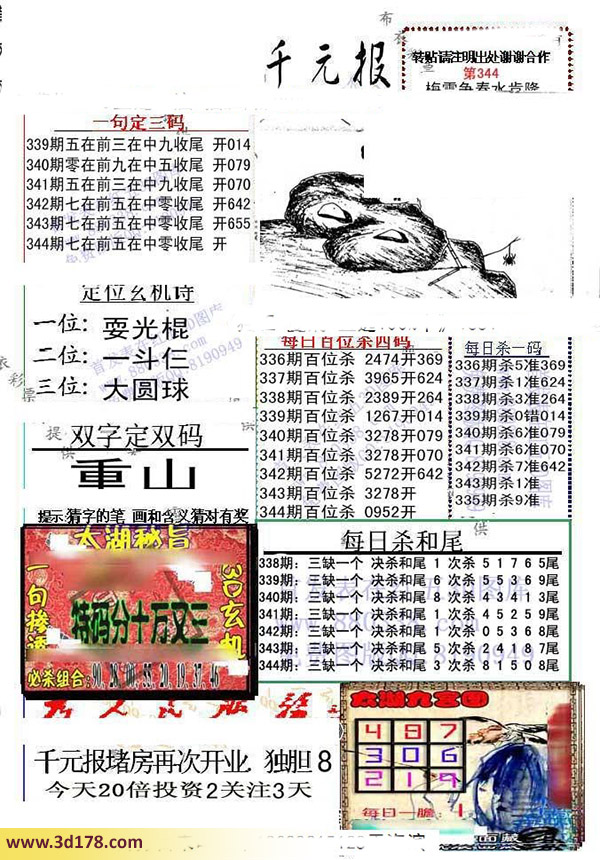 千元报
转贴请注明出处谢谢合作
第344
梅雪争春水肯降
一句定三码
339期五在前三在中九收尾 开014
340期零在前九在中五收尾 开079
341期五在前三在中九收尾 开070
342期七在前五在中零收尾 开642
343期七在前五在中零收尾 开655
344期七在前五在中零收尾 开
定位玄机诗
一位: 耍光棍
二位: 一斗仨
三位: 大圆球
每日百位杀四码
336期百位杀 2474开369
337期百位杀 3965开624
338期百位杀 2389开264
339期百位杀 1267开014
340期百位杀 3278开079
341期百位杀 3278开070
342期百位杀 5272开642
343期百位杀 3278开
344期百位杀 0952开
每日杀一码
336期杀5准369
337期杀1准624
338期杀3准264
339期杀0错014
340期杀6准079
341期杀6准070
342期杀7准642
343期杀1准
335期杀9准
双字定双码
重山
提示:猜字的笔 画和含义猜对有奖
太湖秘旨
一句掺透
3D玄机
特码分十万又三
必杀组合:90, 28, 00, 55, 20, 19, 37, 46
每日杀和尾
338期: 三缺一个 决杀和尾 1 次杀 5 1 7 6 5尾
339期: 三缺一个 决杀和尾 6 次杀 5 5 3 6 9尾
340期: 三缺一个 决杀和尾 8 次杀 4 3 4 1 3尾
341期: 三缺一个 决杀和尾 1 次杀 4 5 2 5 9尾
342期: 三缺一个 决杀和尾 1 次杀 0 5 3 6 8尾
343期: 三缺一个 决杀和尾 5 次杀 2 4 1 8 7尾
344期: 三缺一个 决杀和尾 3 次杀 8 1 5 0 8尾
千元报堵房再次开业 独胆 8
今天20倍投资2关注3天
太湖九宫图
4 8 7
3 0 6
2 1 9
每日一胆: 1
www.3d178.com